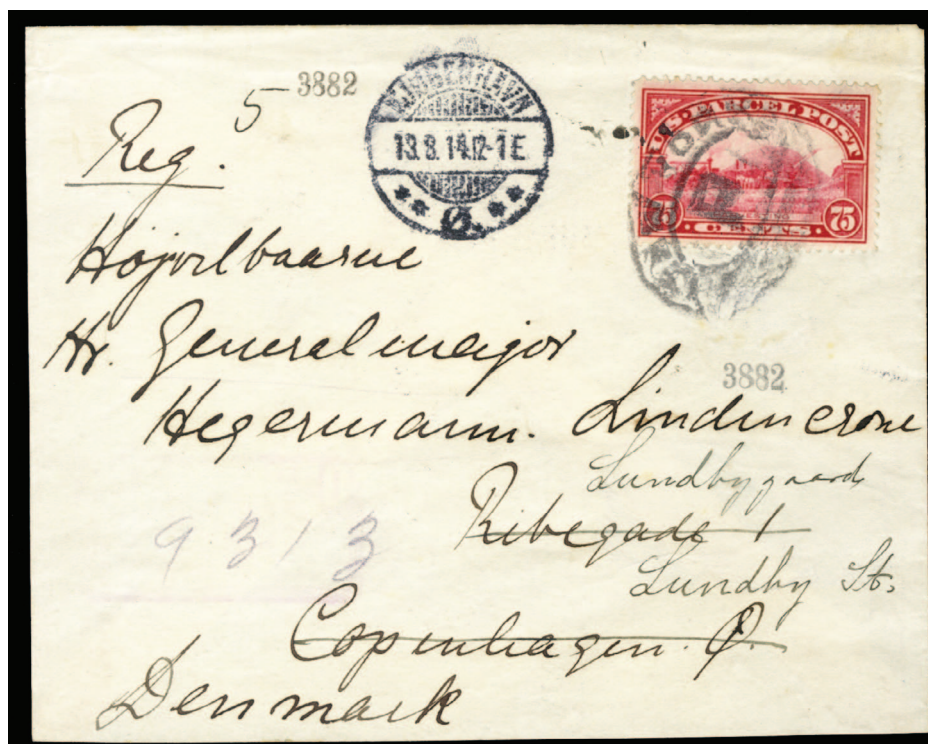 3882
5
Reg.
KJØBENHAVN
13.8.14.12-1E
Ø.
U.S. PARCEL POST
75 75
CENTS
Højvelbaarne
Hr. Generalmajor
3882
Hegermann. Lindencrone
Lundbygaard
Ribegade 1
9313
Lundby St.
Copenhagen. Ø.
Denmark